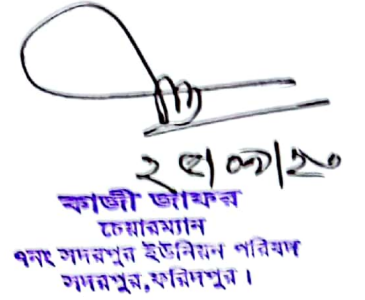 কাজী জাফর
চেয়ারম্যান
৭নং সদরপুর ইউনিয়ন পরিষদ
সদরপুর,ফরিদপুর।